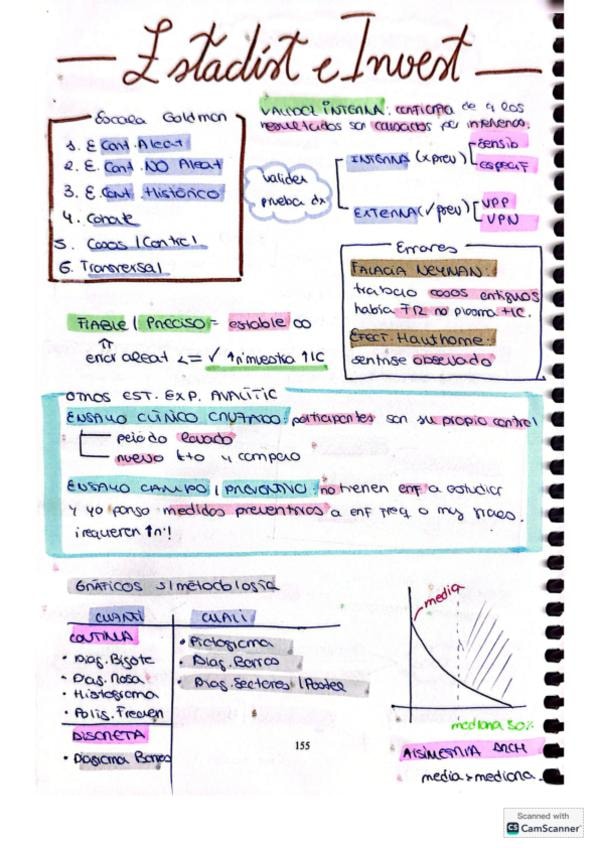 Estadist e Invest
Escala Goldman
1. E Cont. Aleat
2. E Cont. NO Aleat
3. E. Cont. Histórico
4. Cohorte
5. Casos / Control
6. Transversal
VALIDEZ INTERNA: confianza de q los
resultados son causados por intervenc.
validez
prueba dx
INTERNA (x prev)
sensib
especif
EXTERNA (✓ prev)
VPP
VPN
Errores
FALACIA NEYMAN:
trabajo casos antiguos
había FR no plasma HC.
EFECT. Hawthorne:
sentirse observado
FIABLE / PRECISO = estable ∞
⇑
error aleat <= ✓ ↑n muestra ↑IC
OTROS EST. EXP. ANALÍTIC
ENSAYO CLÍNICO CRUZADO: participantes son su propio control
periodo lavado
nuevo tto y comparo
ENSAYO CAMPO / PREVENTIVO: no tienen enf a estudiar
y yo pongo medidas preventivas a enf freq o muy graves.
¡requieren ↑n!
GRÁFICOS s/ metodología
CUANTI
CUALI
CONTINUA
• Diag. Bigote
• Diag. Rosa
• Histograma
• Polig. Frecuen
DISCRETA
• Diagrama Barras
• Pictograma
• Diag. Barras
• Diag. Sectores / Pastel
media
mediana 50%
ASIMETRÍA DRCH
media > mediana.
155
Scanned with
CS CamScanner